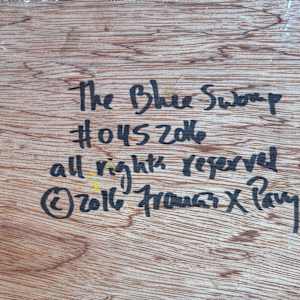 The Blue Swamp
#045 2016
all rights reserved
© 2016 Francis X Pavy